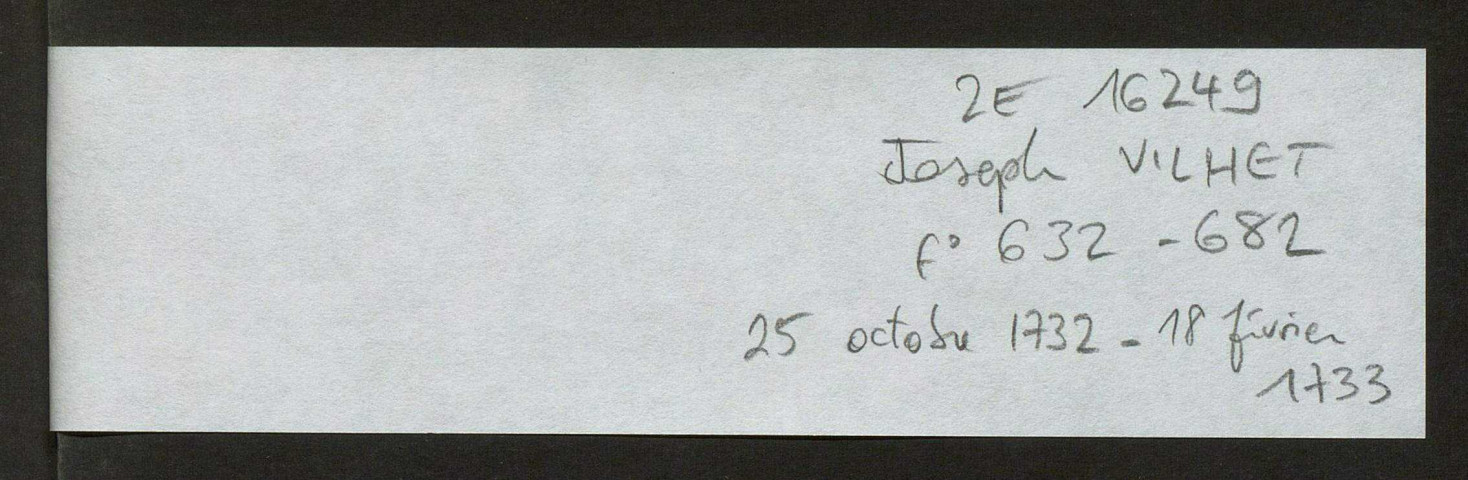 2E 16249
Joseph VILHET
f° 632 - 682
25 octobre 1732 - 18 février
1733